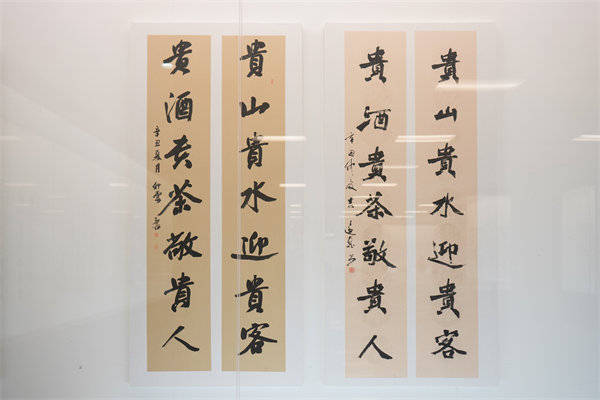 貴山貴水迎貴客
貴酒貴茶敬貴人
辛丑仲夏
貴山貴水迎貴客
貴酒貴茶敬貴人
辛丑夏月